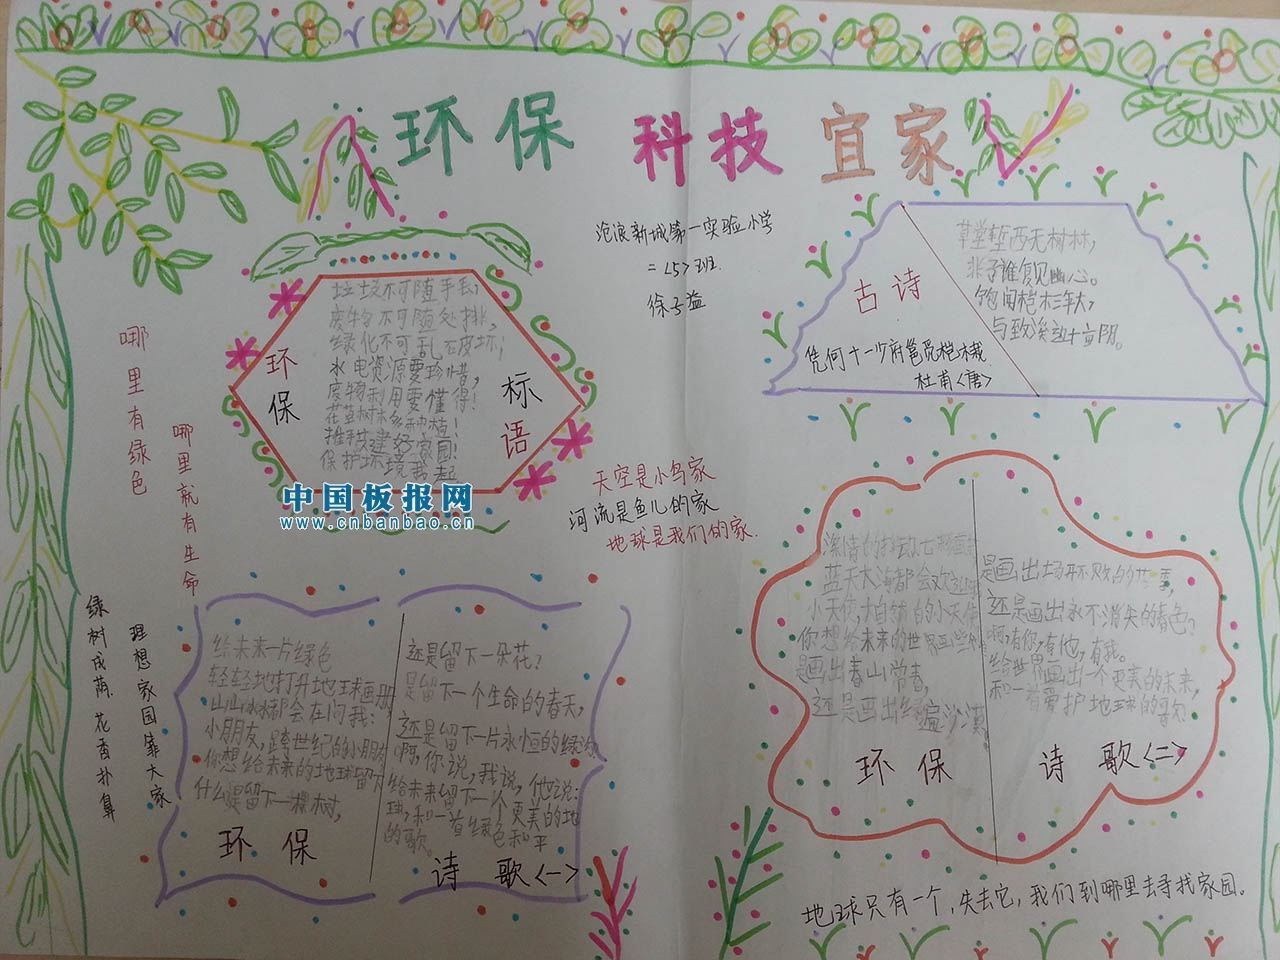 环保 科技 宜家
沧浪新城第一实验小学
二<5>班
徐子益
环保
标语
垃圾不可随手丢,
废物不可随处排,
绿化不可乱破坏;
水电资源要珍惜,
废物利用要懂得!
花草树木多种植!
推手共建好家园!
保护环境我起
中国板报网
www.cnbanbao.cn
古诗
凭何十一少府邕觅桤木栽
杜甫<唐>
草堂堑西无树林,
非子谁复见幽心。
饱闻桤木三年大,
与致溪边十亩阴。
哪里有绿色
哪里就有生命
天空是小鸟家
河流是鱼儿的家
地球是我们的家.
理想家园靠大家
绿树成荫 花香扑鼻
给未来一片绿色
轻轻地打开地球画册,
山山水水都会在问我:
小朋友,跨世纪的小朋友
你想给未来的地球留下
什么是留下一棵树,
还是留下一朵花?
是留下一个生命的春天,
还是留下一片永恒的绿洲
啊,你说,我说,他说:
给未来留下一个更美的地
球,和一首绿色和平
的歌。
环保 诗歌<一>
蓝天大海都会欢迎
小天使,大自然的小天使
你想给未来的世界画些
是画出春山常春,
还是画出绿 沙漠。
是画出场开不败的花季,
还是画出永不消失的春色?
啊有你,有他,有我。
给世界画出一个更美的未来,
和一首爱护地球的尋
环保 诗歌<二>
地球只有一个,失去它,我们到哪里去寻找家园。